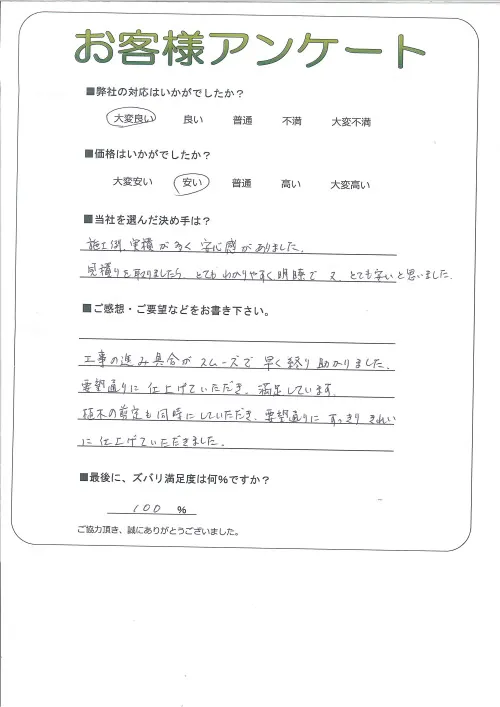 お客様アンケート
■弊社の対応はいかがでしたか？
大変良い 良い 普通 不満 大変不満
■価格はいかがでしたか？
大変安い 安い 普通 高い 大変高い
■当社を選んだ決め手は？
施工例、実積が多く安心感がありました。
見積りを取りましたら、とてもわかりやすく明瞭で又、とても安いと思いました。
■ご感想・ご要望などをお書き下さい。
工事の進み具合がスムーズで早く終り助かりました。
要望通りに仕上げていただき、満足しています。
植木の剪定も同時にしていただき、要望通りにすっきりきれい
に仕上げていただきました。
■最後に、ズバリ満足度は何%ですか？
100 %
ご協力頂き、誠にありがとうございました。